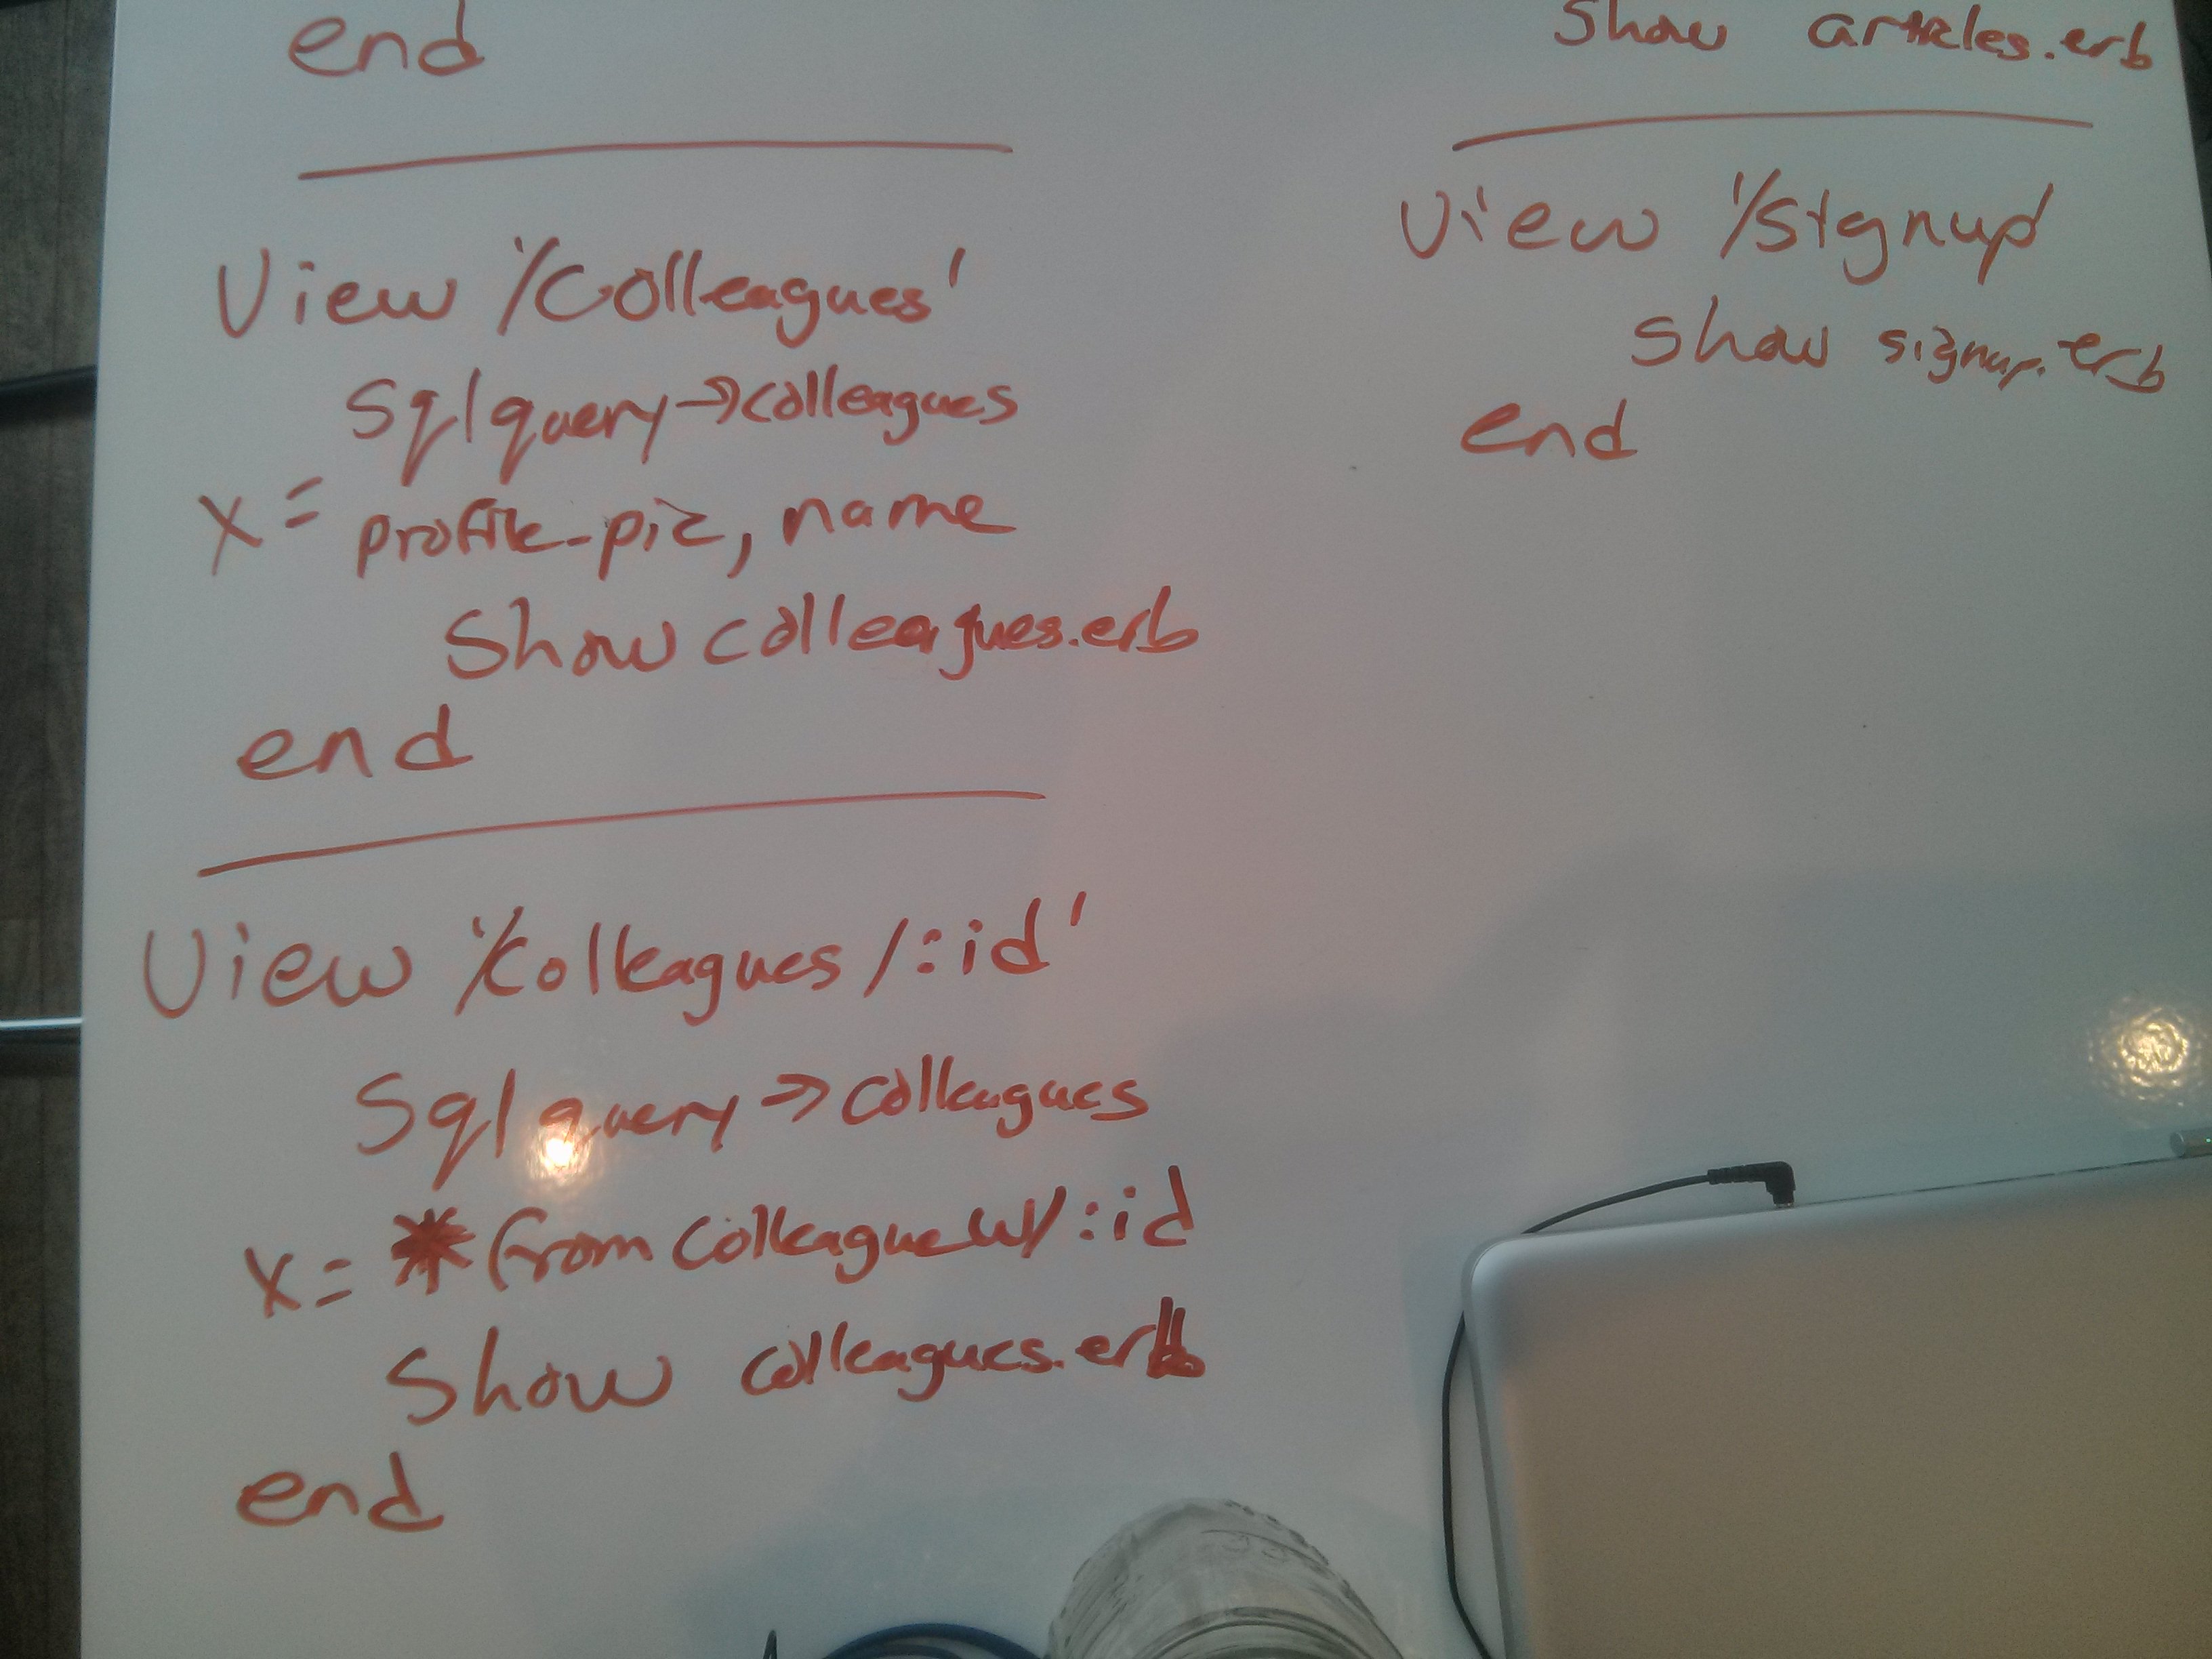 end
View '/Colleagues'
Sql query → colleagues
x = profile_pic, name
Show colleagues.erb
end
View '/colleagues/:id'
Sql query → colleagues
x = * from colleague w/ :id
Show colleagues.erb
end
Show articles.erb
View '/signup
Show signup.erb
end